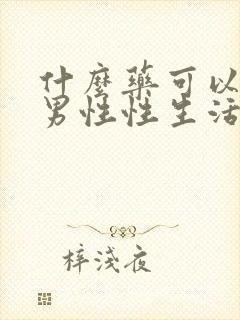 什麼藥可以
男性性生活
梓淺夜